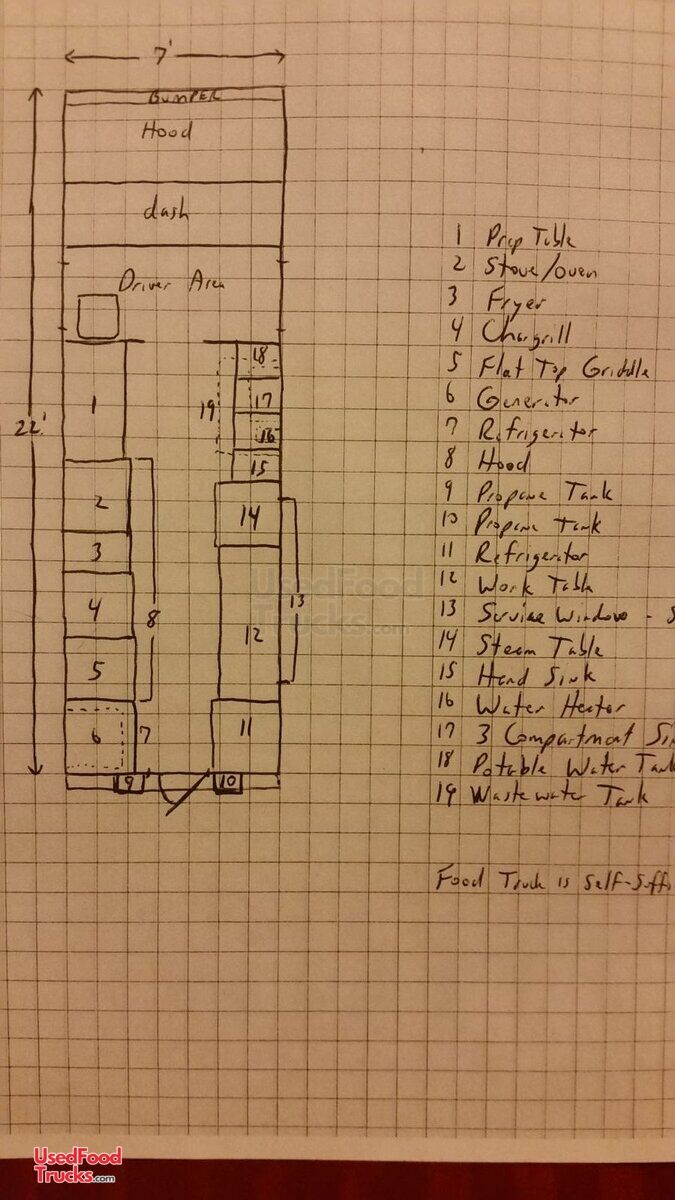 7'
BUMPER
Hood
dash
Driver Area
22'
1
2
3
4
5
6
7
8
9
10
11
12
13
14
15
16
17
18
19
1 Prep Table
2 Stove/oven
3 Fryer
4 Chargrill
5 Flat Top Griddle
6 Generator
7 Refrigerator
8 Hood
9 Propane Tank
10 Propane Tank
11 Refrigerator
12 Work Table
13 Service Window - S
14 Steam Table
15 Hand Sink
16 Water Heater
17 3 Compartment Sin
18 Potable Water Tank
19 Wastewater Tank
Food Truck is Self-Suffi
UsedFood
Trucks.com
UsedFood
Trucks.com